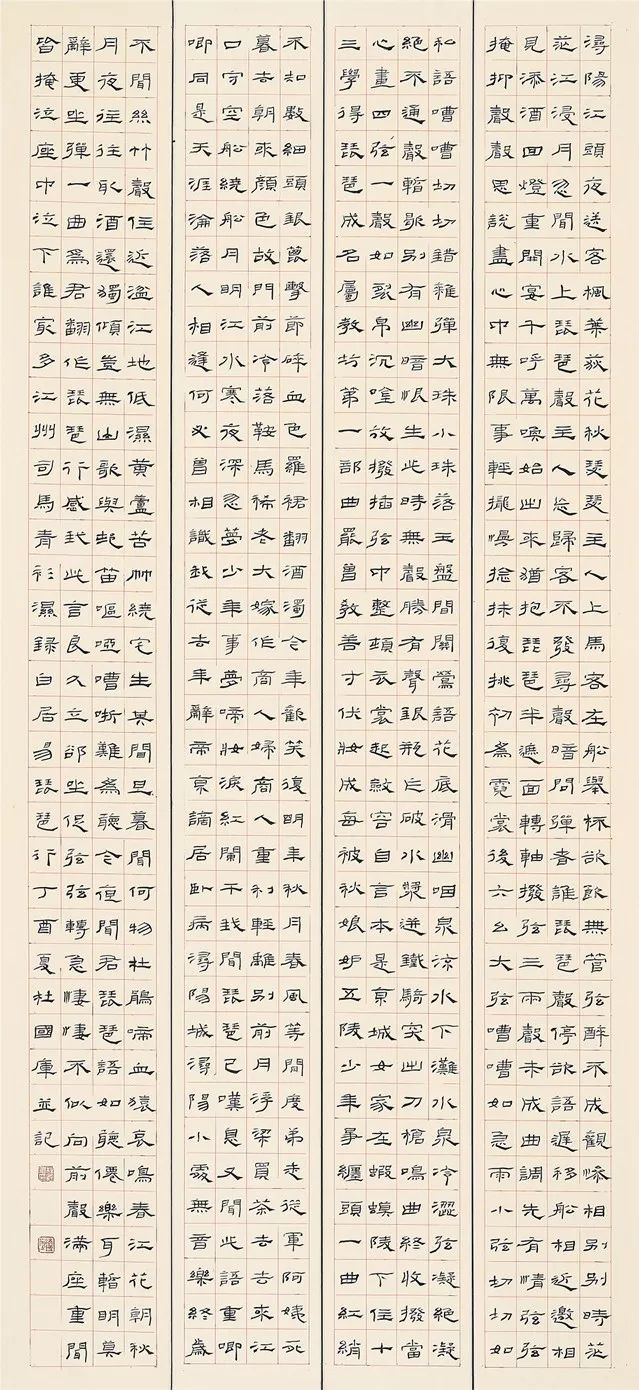 潯陽江頭夜送客楓葉荻花秋瑟瑟主人上馬客在船舉杯欲飲無管弦醉不成歡慘相別別時茫
茫江浸月忽聞水上琵琶聲主人忘歸客不發尋聲暗問彈者誰琵琶聲停欲語遲移船相近邀相
見添酒回燈重開宴千呼萬喚始出來猶抱琵琶半遮面轉軸撥弦三兩聲未成曲調先有情弦弦
掩抑聲聲思說盡心中無限事輕攏慢捻抹復挑初為霓裳後六幺大弦嘈嘈如急雨小弦切切如
私語嘈嘈切切錯雜彈大珠小珠落玉盤間關鶯語花底滑幽咽泉流水下灘水泉冷澀弦凝絕凝
絕不通聲暫歇別有幽暗恨生此時無聲勝有聲銀瓶乍破水漿迸鐵騎突出刀槍鳴曲終收撥當
心畫四弦一聲如裂帛沉吟放撥插弦中整頓衣裳起斂容自言本是京城女家在蝦蟆陵下住十
三學得琵琶成名屬教坊第一部曲罷曾教善才伏妝成每被秋娘妒五陵少年爭纏頭一曲紅綃
不知數鈿頭銀篦擊節碎血色羅裙翻酒濁今年歡笑復明年秋月春風等閒度弟走從軍阿姨死
暮去朝來顏色故門前冷落鞍馬稀老大嫁作商人婦商人重利輕離別前月浮梁買茶去去來江
口守空船繞船月明江水寒夜深忽夢少年事夢啼妝淚紅闌干我聞琵琶已嘆息又聞此語重唧
唧同是天涯淪落人相逢何必曾相識我從去年辭帝京謫居臥病潯陽城潯陽小處無音樂終歲
不聞絲竹聲住近湓江地低濕黃蘆苦竹繞宅生其間旦暮聞何物杜鵑啼血猿哀鳴春江花朝秋
月夜往往取酒還獨傾豈無山歌與村笛嘔啞嘈哳難為聽今夜聞君琵琶語如聽僊樂耳暫明莫
辭更坐彈一曲為君翻作琵琶行感我此言良久立卻坐促弦弦轉急淒淒不似向前聲滿座重聞
皆掩泣座中泣下誰最多江州司馬青衫濕錄白居易琵琶行丁酉夏杜國庫並記